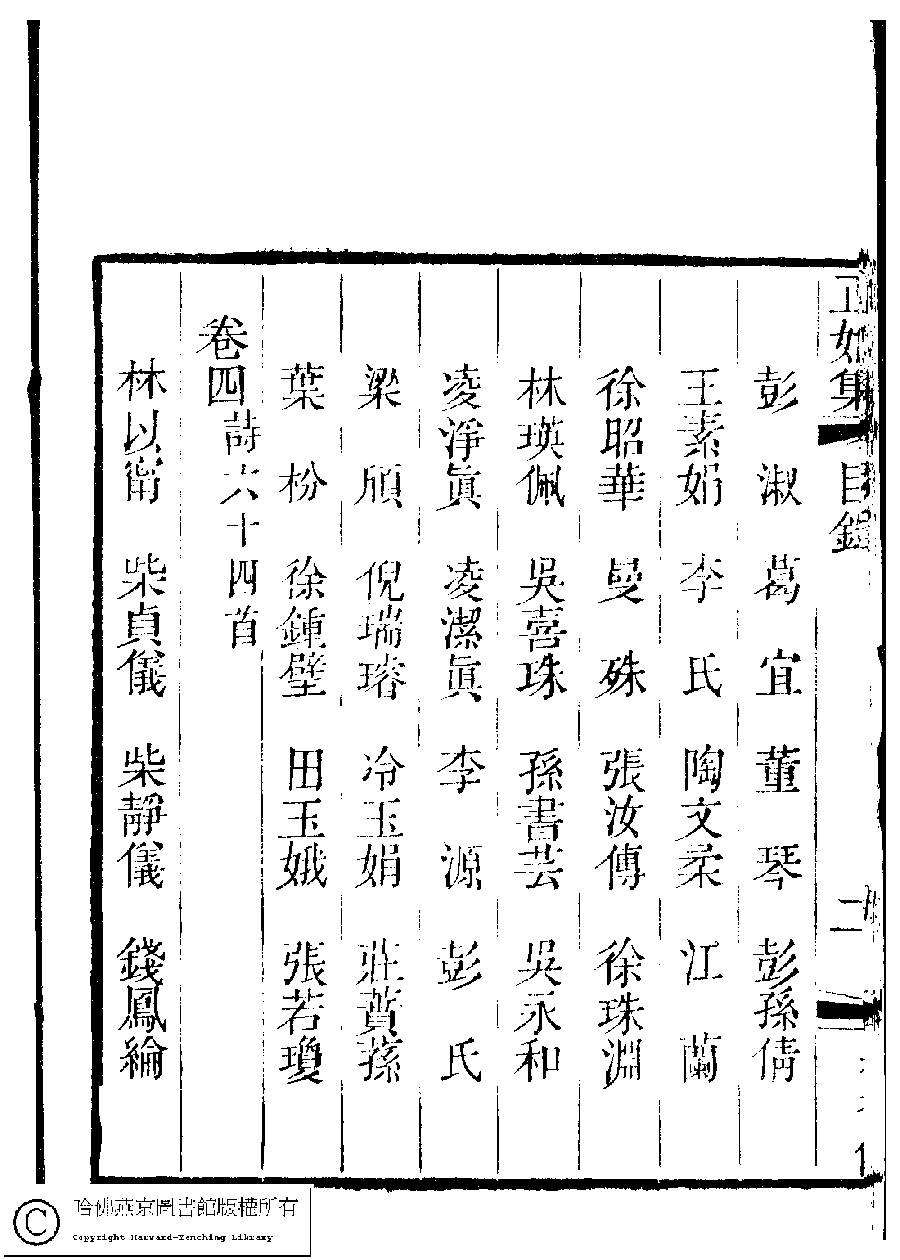 正始集 目錄 二
彭淑 葛宜 董琴 彭孫倩
王素娟 李氏 陶文柔 江蘭
徐昭華 曼殊 張汝傳 徐珠淵
林瑛佩 吳喜珠 孫書芸 吳永和
凌淨眞 凌潔眞 李源 彭氏
梁頎 倪瑞璿 冷玉娟 莊蕡蓀
葉枌 徐鍾壁 田玉娥 張若瓊
卷四詩六十四首
林以甯 柴貞儀 柴靜儀 錢鳳綸
哈佛燕京圖書館版權所有
Copyright Harvard-Yenching Library